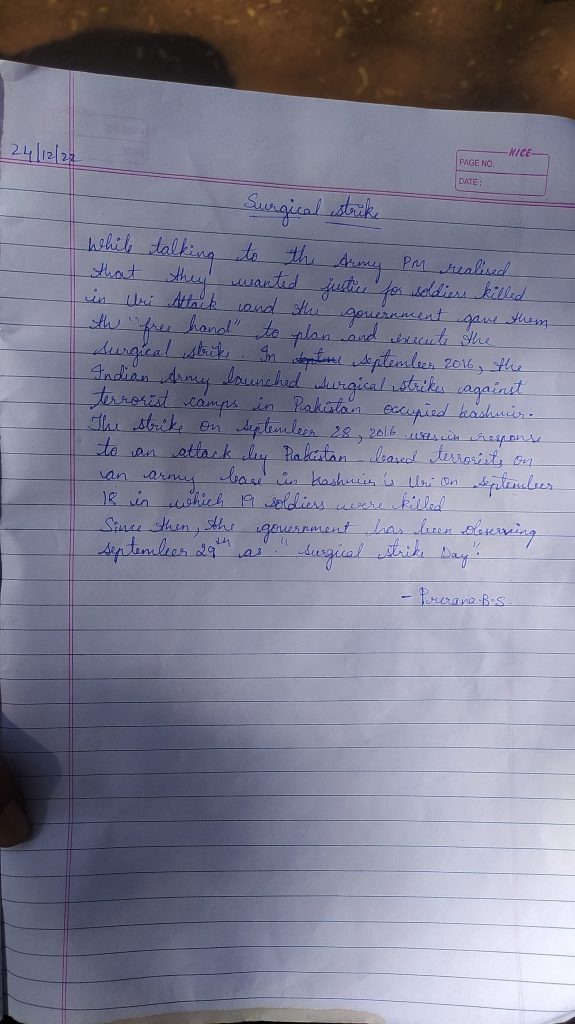 24/12/22
NICE
PAGE NO.
DATE :
Surgical strike
While talking to the Army PM realised
that they wanted justice for soldiers killed
in Uri Attack and the government gave them
the "free hand" to plan and execute the
surgical strike. In September 2016, the
Indian Army launched surgical strikes against
terrorist camps in Pakistan occupied kashmir.
The strike on September 28, 2016 was in response
to an attack by Pakistan-based terrorists on
an army base in kashmir's Uri on september
18 in which 19 soldiers were killed
Since then, the government has been observing
September 29th as "Surgical strike Day".
- Prerana.B.S.